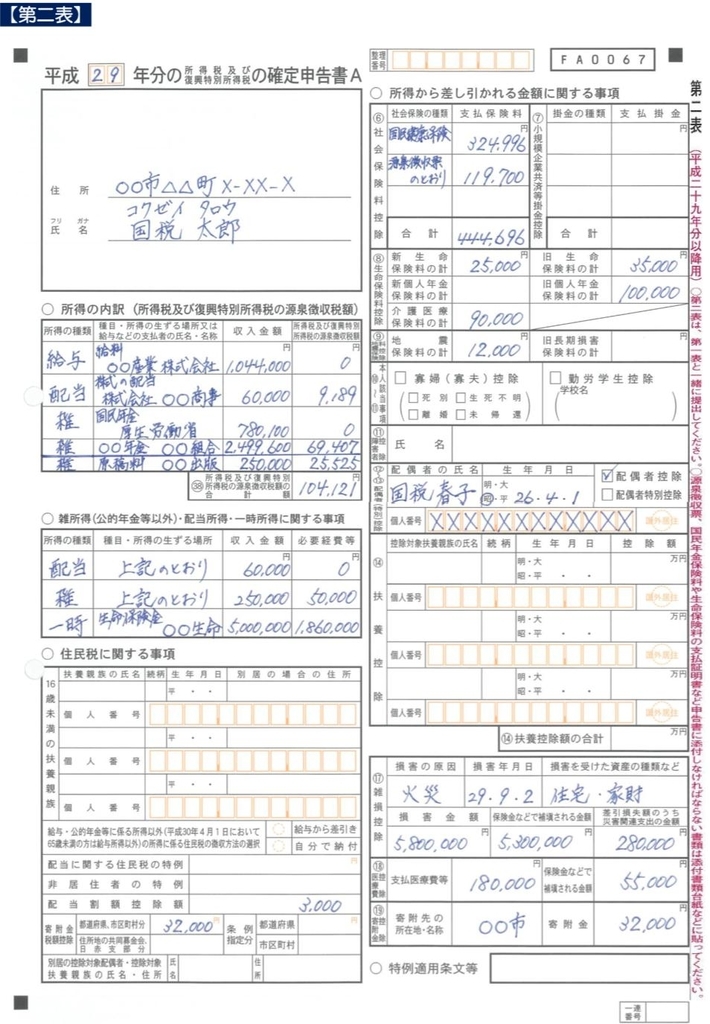 【第二表】
平成 29 年分の 所得税及び復興特別所得税 の確定申告書A
整理番号
FA0067
住所 ○○市△△町X-XX-X
フリガナ コクゼイ タロウ
氏名 国税 太郎
○ 所得の内訳（所得税及び復興特別所得税の源泉徴収税額）
所得の種類 種目・所得の生ずる場所又は給与などの支払者の氏名・名称 収入金額 所得税及び復興特別所得税の源泉徴収税額
給与 給料 ○○産業 株式会社 1,044,000 円 0 円
配当 株式の配当 株式会社 ○○商事 60,000 9,189
雑 国民年金 厚生労働省 780,100 0
雑 ○○年金 ○○組合 2,499,600 69,407
雑 原稿料 ○○出版 250,000 25,525
㊳ 所得税及び復興特別所得税の源泉徴収税額の合計額 104,121 円
○ 雑所得(公的年金等以外)・配当所得・一時所得に関する事項
所得の種類 種目・所得の生ずる場所 収入金額 必要経費等
配当 上記のとおり 60,000 円 0 円
雑 上記のとおり 250,000 50,000
一時 生命保険金 ○○生命 5,000,000 1,860,000
○ 住民税に関する事項
16歳未満の扶養親族
扶養親族の氏名 続柄 生年月日 別居の場合の住所
平 ・ ・
個人番号
平 ・ ・
個人番号
平 ・ ・
個人番号
給与・公的年金等に係る所得以外(平成30年4月1日において65歳未満の方は給与所得以外)の所得に係る住民税の徴収方法の選択
給与から差引き
自分で納付
配当に関する住民税の特例
非居住者の特例
配当割額控除額 3,000
寄附金税額控除 都道府県、市区町村分 32,000 円 条例指定分 都道府県
住所地の共同募金会、日赤支部分 市区町村
別居の控除対象配偶者・控除対象扶養親族の氏名・住所 氏名 住所
○ 所得から差し引かれる金額に関する事項
⑥ 社会保険料控除 社会保険の種類 支払保険料 ⑦ 小規模企業共済等掛金控除 掛金の種類 支払掛金
国民健康保険 324,996 円
源泉徴収票のとおり 119,700
合計 444,696 合計
⑧ 生命保険料控除 新生命保険料の計 25,000 円 旧生命保険料の計 35,000 円
新個人年金保険料の計 旧個人年金保険料の計 100,000
介護医療保険料の計 90,000
⑨ 地震保険料の計 12,000 円 旧長期損害保険料の計 円
本人該当事項 ⑩～⑪ □ 寡婦(寡夫)控除 □ 勤労学生控除
□ 死別 □ 生死不明 学校名
□ 離婚 □ 未帰還
⑪ 障害者控除 氏名
⑫～⑬ 配偶者(特別)控除 配偶者の氏名 生年月日 ☑ 配偶者控除
国税 春子 明・大 昭・平 26.4.1 □ 配偶者特別控除
個人番号 XXXXXXXXXXXX 国外居住
⑭ 扶養控除 控除対象扶養親族の氏名 続柄 生年月日 控除額
明・大 昭・平 ・ ・ 万円
個人番号 国外居住
明・大 昭・平 ・ ・ 万円
個人番号 国外居住
明・大 昭・平 ・ ・ 万円
個人番号 国外居住
⑭扶養控除額の合計 万円
⑰ 雑損控除 損害の原因 損害年月日 損害を受けた資産の種類など
火災 29.9.2 住宅・家財
損害金額 保険金などで補填される金額 差引損失額のうち災害関連支出の金額
5,800,000 円 5,300,000 円 280,000 円
⑱ 医療費控除 支払医療費等 180,000 円 保険金などで補填される金額 55,000 円
⑲ 寄附金控除 寄附先の所在地・名称 ○○市 寄附金 32,000 円
○ 特例適用条文等
一連番号
第二表（平成二十九年分以降用）
○第二表は、第一表と一緒に提出してください。○源泉徴収票、国民年金保険料や生命保険料の支払証明書など申告書に添付しなければならない書類は添付書類台紙などに貼ってください。